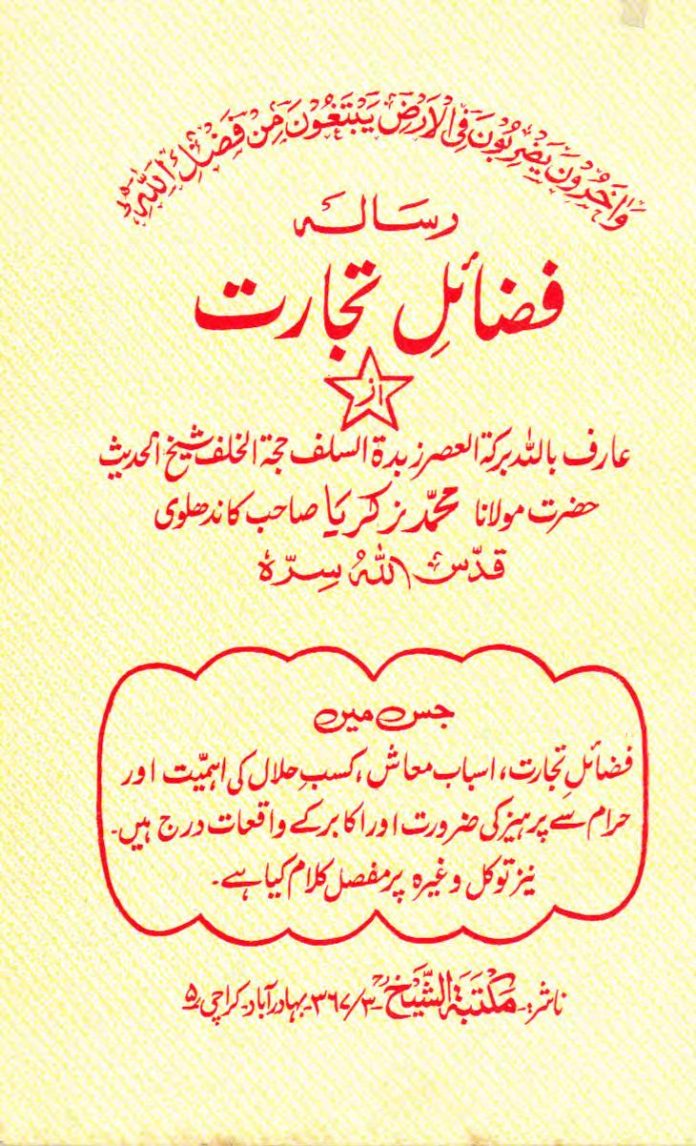 وَاٰخَرُوْنَ يَضْرِبُوْنَ فِى الْاَرْضِ يَبْتَغُوْنَ مِنْ فَضْلِ اللّٰهِ
رسالہ
فضائلِ تجارت
از
عارف باللہ برکۃ العصر زبدۃ السلف حجۃ الخلف شیخ الحدیث
حضرت مولانا محمّد زکریا صاحب کاندھلوی
قدّس اللہُ سرّہٗ
جس میں
فضائلِ تجارت، اسباب معاش، کسبِ حلال کی اہمیّت اور
حرام سے پرہیز کی ضرورت اور اکابر کے واقعات درج ہیں۔
نیز توکل وغیرہ پر مفصل کلام کیا ہے۔
ناشر:۔ مکتبۃ الشّیخؒ ۔ ۳۶۷/۳۔ بہادر آباد۔ کراچی ۵